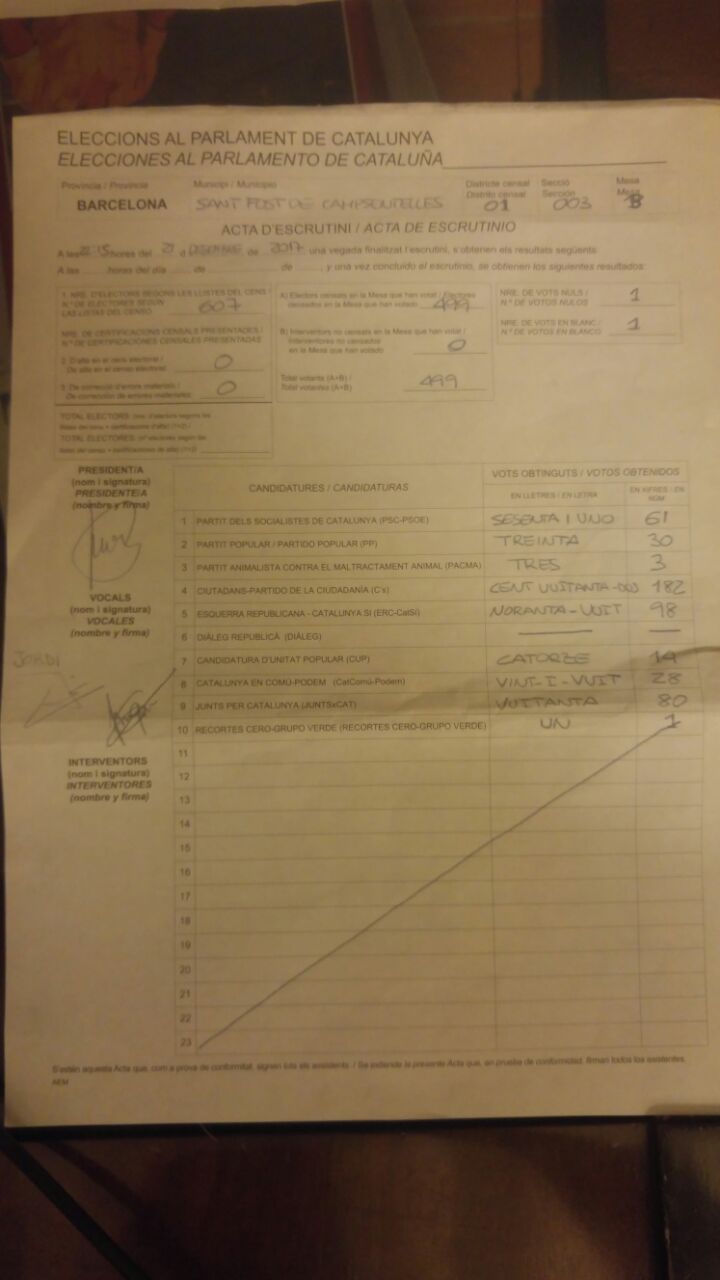 ELECCIONS AL PARLAMENT DE CATALUNYA
ELECCIONES AL PARLAMENTO DE CATALUÑA
Província / Provincia Municipi / Municipio Districte censal Secció Mesa
Distrito censal Sección Mesa
BARCELONA SANT FOST DE CAMPSENTELLES 01 003 B
ACTA D'ESCRUTINI / ACTA DE ESCRUTINIO
A les 22:15 hores del 21 d DESEMBRE de 2017 una vegada finalitzat l'escrutini, s'obtenen els resultats següents:
A las hores del día de de , y una vez concluido el escrutinio, se obtienen los siguientes resultados:
1. NRE. D'ELECTORS SEGONS LES LLISTES DEL CENS /
N.º DE ELECTORES SEGÚN
LAS LISTAS DEL CENSO 607
NRE. DE CERTIFICACIONS CENSALS PRESENTADES /
N.º DE CERTIFICACIONES CENSALES PRESENTADAS
2. D'alta en el cens electoral /
De alta en el censo electoral 0
3. De correcció d'errors materials /
De corrección de errores materiales 0
TOTAL ELECTORS
TOTAL ELECTORES
A) Electors censats en la Mesa que han votat / Electores
censados en la Mesa que han votado 499
B) Interventors no censats en la Mesa que han votat /
Interventores no censados
en la Mesa que han votado 0
Total votants (A+B) /
Total votantes (A+B) 499
NRE. DE VOTS NULS /
N.º DE VOTOS NULOS 1
NRE. DE VOTS EN BLANC /
N.º DE VOTOS EN BLANCO 1
PRESIDENT/A
(nom i signatura)
PRESIDENTE/A
(nombre y firma)
VOCALS
(nom i signatura)
VOCALES
(nombre y firma)
JORDI
INTERVENTORS
(nom i signatura)
INTERVENTORES
(nombre y firma)
CANDIDATURES / CANDIDATURAS VOTS OBTINGUTS / VOTOS OBTENIDOS
EN LLETRES / EN LETRA EN XIFRES / EN NÚM
1 PARTIT DELS SOCIALISTES DE CATALUNYA (PSC-PSOE) SESENTA I UNO 61
2 PARTIT POPULAR / PARTIDO POPULAR (PP) TREINTA 30
3 PARTIT ANIMALISTA CONTRA EL MALTRACTAMENT ANIMAL (PACMA) TRES 3
4 CIUTADANS-PARTIDO DE LA CIUDADANÍA (C's) CENT VUITANTA-DOS 182
5 ESQUERRA REPUBLICANA - CATALUNYA SÍ (ERC-CatSí) NORANTA-VUIT 98
6 DIÀLEG REPUBLICÀ (DIÀLEG) — —
7 CANDIDATURA D'UNITAT POPULAR (CUP) CATORZE 14
8 CATALUNYA EN COMÚ-PODEM (CatComú-Podem) VINT-I-VUIT 28
9 JUNTS PER CATALUNYA (JUNTSxCAT) VUITANTA 80
10 RECORTES CERO-GRUPO VERDE (RECORTES CERO-GRUPO VERDE) UN 1
11
12
13
14
15
16
17
18
19
20
21
22
23
S'estén aquesta Acta que, com a prova de conformitat, signen tots els assistents. / Se extiende la presente Acta que, en prueba de conformidad, firman todos los asistentes.